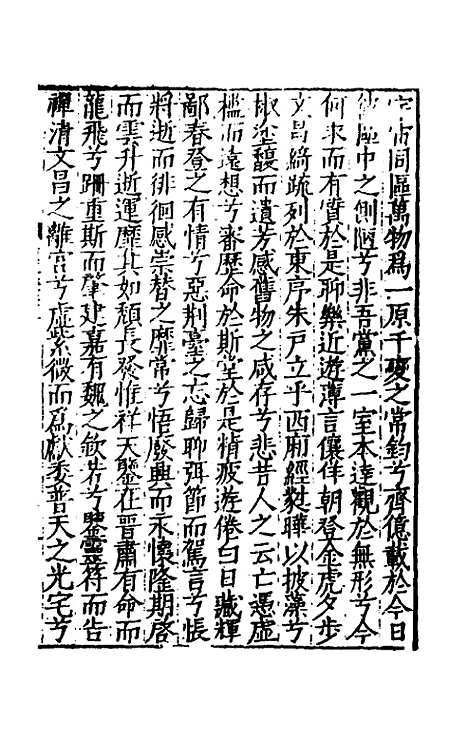 宇宙同區萬物爲一原千變之常鈞兮齊億載於今日
彼區中之側陋兮非吾黨之一室本達觀於無形兮今
何求而有質於是聊樂近遊薄言儴佯朝登金虎夕步
文昌綺疏列於東序朱戶立乎西廂經蕤曄以披藻兮
椒塗馥而遺芳感舊物之咸存兮悲昔人之云亡憑虛
檻而遠想兮審歷命於斯堂於是精疲遊倦白日藏輝
鄙春登之有情兮惡荆臺之忘歸聊弭節而駕言兮悵
將逝而徘徊感崇替之靡常兮悟廢興而永懷隆期啓
而雲升逝運靡其如頹長發惟祥天鑒在晉肅有命而
龍飛兮跚重斯而肇建嘉有魏之欽若兮鑒靈符而告
禪清文昌之離言兮虛紫微而爲獻委普天之光宅兮